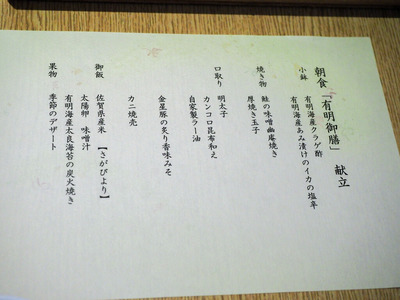 朝食「有明御膳」 献立
小鉢 有明海産クラゲ酢
有明海産あみ漬けのイカの塩辛
焼き物 鮭の味噌幽庵焼き
厚焼き玉子
口取り 明太子
カンコロ昆布和え
自家製ラー油
金星豚の炙り香味みそ
カニ焼売
御飯 佐賀県産米 【さがびより】
太陽卵 味噌汁
有明海産太良海苔の炭火焼き
果物 季節のデザート